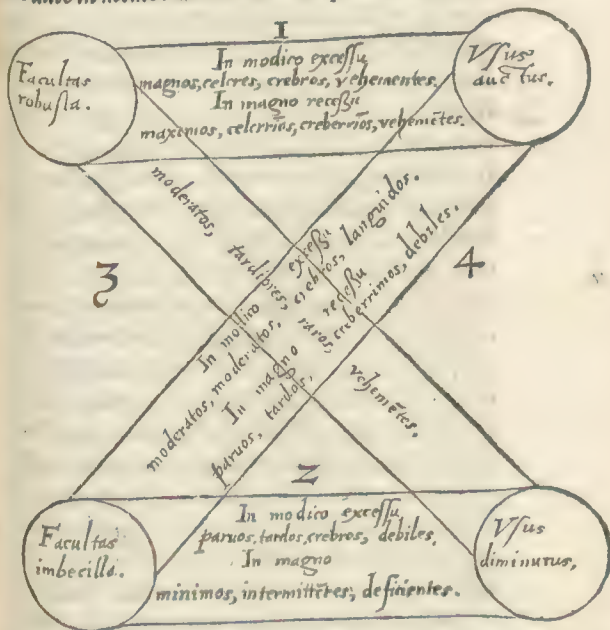 1
Facultas
robusta.
In modico excessu
magnos, celeres, crebros, vehementes.
In magno recessu
maximos, celerrīos, creberrīos, vehemētes.
Vsus
auctus.
moderatos, tardiores,
vehemētes.
In modico excessu
moderatos, moderatos, crebros, languidos.
In magno recessu
paruos, tardos, raros, creberrimos, debiles.
3
4
2
Facultas
imbecilla.
In modico excessu
paruos, tardos, crebros, debiles.
In magno
minimos, intermittētes, deficientes.
Vsus
diminutus,